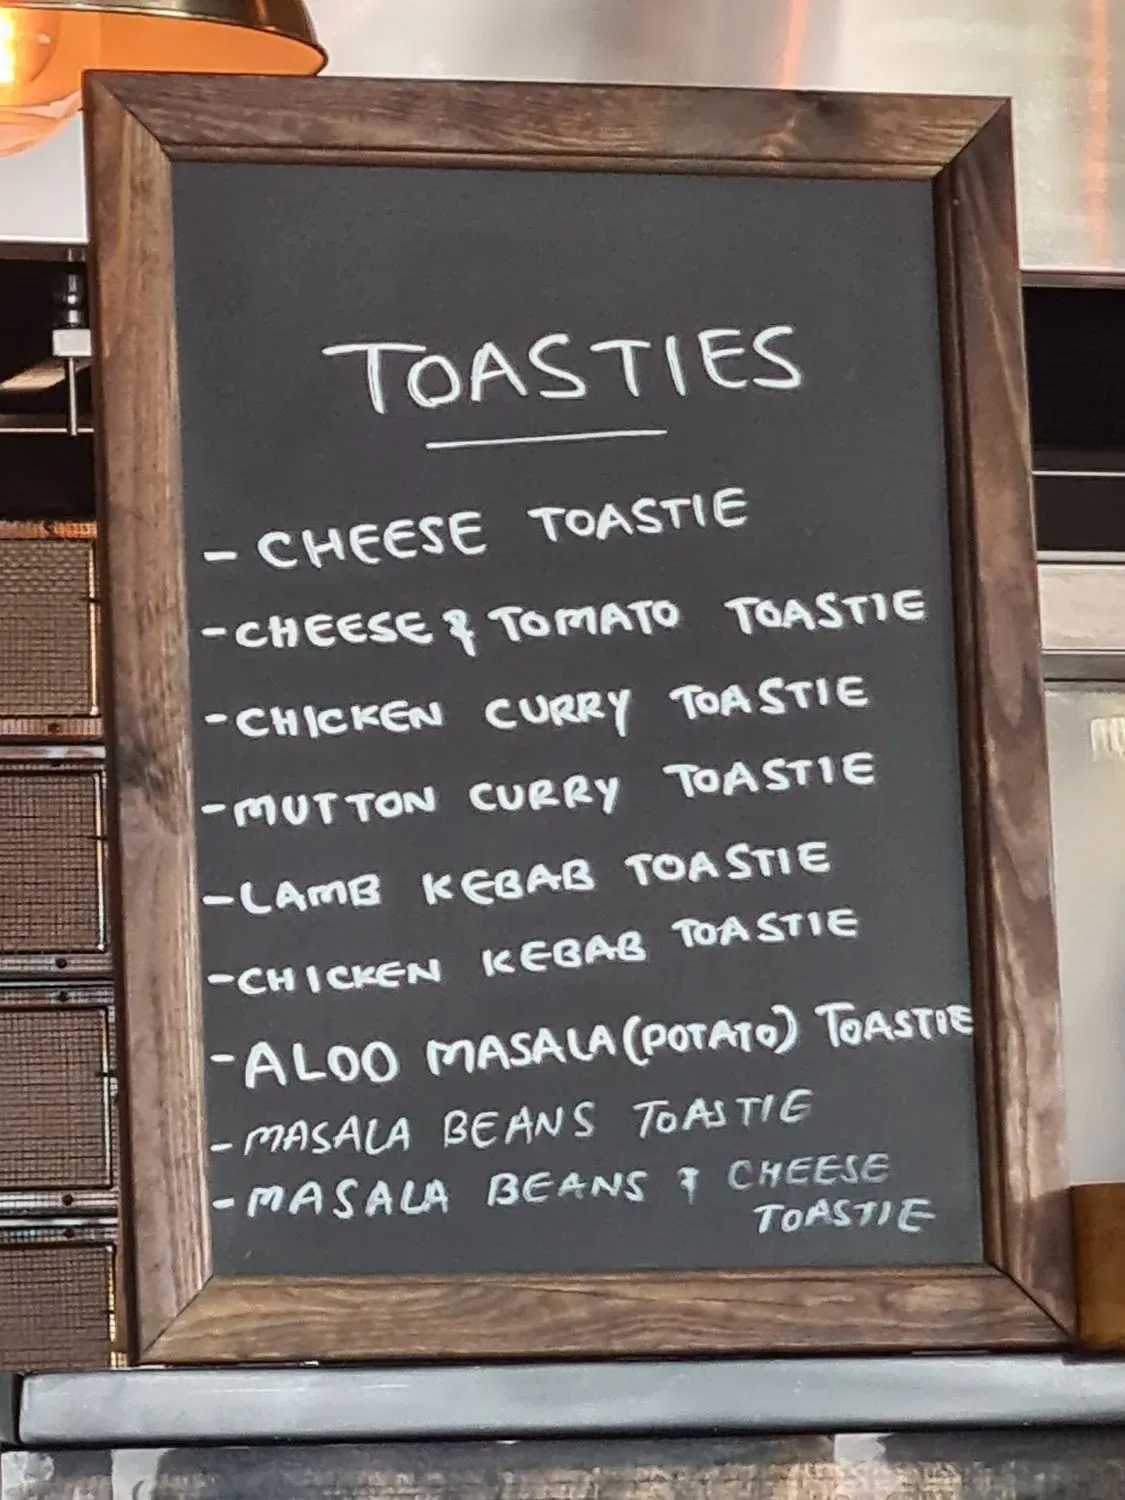 TOASTIES
- CHEESE TOASTIE
- CHEESE & TOMATO TOASTIE
- CHICKEN CURRY TOASTIE
- MUTTON CURRY TOASTIE
- LAMB KEBAB TOASTIE
- CHICKEN KEBAB TOASTIE
- ALOO MASALA (POTATO) TOASTIE
- MASALA BEANS TOASTIE
- MASALA BEANS & CHEESE
TOASTIE